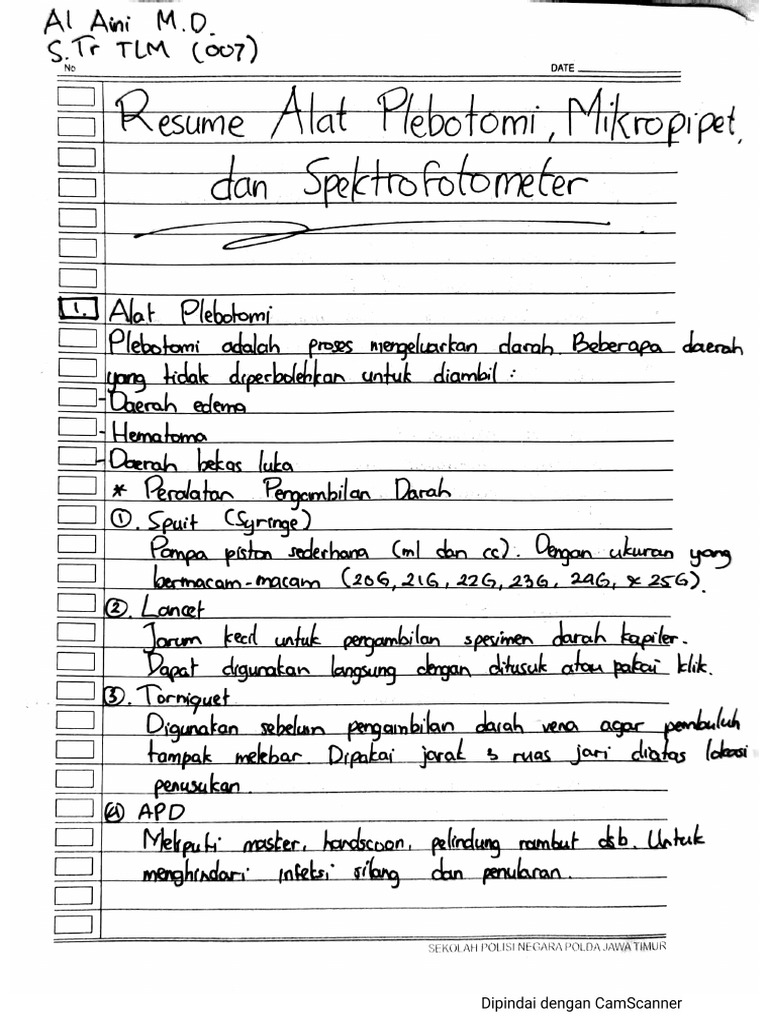 Al Aini M.D.
S.Tr TLM (007)
No
DATE
Resume Alat Plebotomi, Mikropipet,
dan Spektrofotometer
1. Alat Plebotomi
Plebotomi adalah proses mengeluarkan darah. Beberapa daerah
yang tidak diperbolehkan untuk diambil :
- Daerah edema
- Hematoma
- Daerah bekas luka
* Peralatan Pengambilan Darah
①. Spuit (Syringe)
Pompa piston sederhana (ml dan cc). Dengan ukuran yang
bermacam-macam (20G, 21G, 22G, 23G, 24G, & 25G).
②. Lancet
Jarum kecil untuk pengambilan spesimen darah kapiler.
Dapat digunakan langsung dengan ditusuk atau pakai klik.
③. Torniquet
Digunakan sebelum pengambilan darah vena agar pembuluh
tampak melebar. Dipakai jarak 3 ruas jari diatas lokasi
penusukan.
④ APD
Meliputi masker, handscoon, pelindung rambut dsb. Untuk
menghindari infeksi silang dan penularan.
SEKOLAH POLISI NEGARA POLDA JAWA TIMUR
Dipindai dengan CamScanner